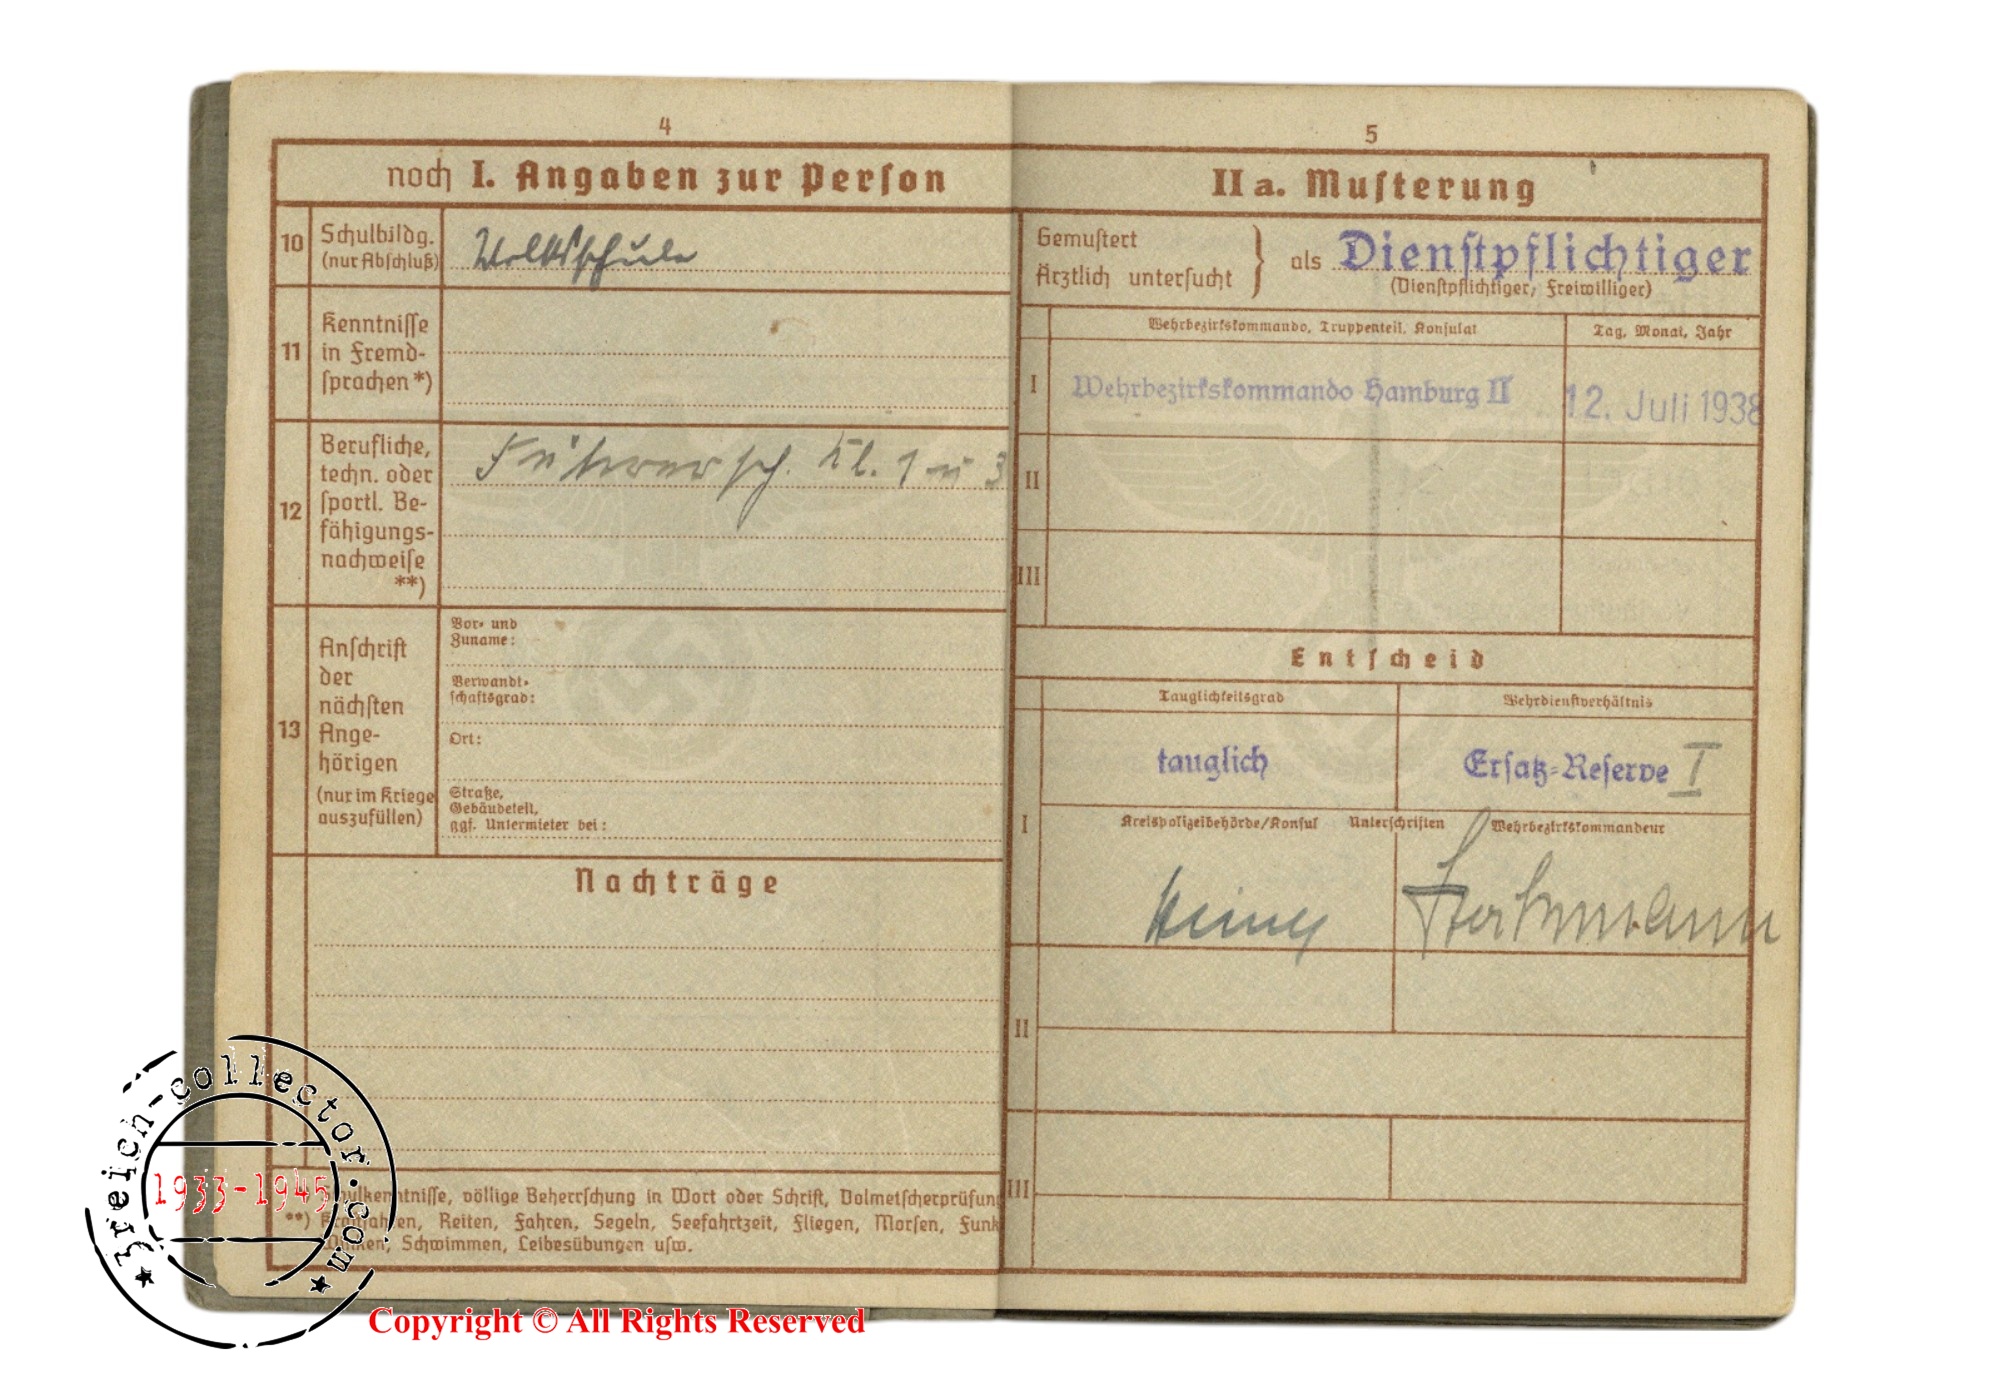 4
noch I. Angaben zur Person
10
Schulbildg.
(nur Abschluß)
Volksschule
11
Kenntnisse
in Fremd-
sprachen *)
12
Berufliche,
techn. oder
sportl. Be-
fähigungs-
nachweise
**)
Führersch. Kl. 1 u 3
13
Anschrift
der
nächsten
Ange-
hörigen
(nur im Kriege
auszufüllen)
Vor- und
Zuname:
Verwandt-
schaftsgrad:
Ort:
Straße,
Gebäudeteil,
ggf. Untermieter bei:
Nachträge
kenntnisse, völlige Beherrschung in Wort oder Schrift, Dolmetscherprüfung
**) Kraftfahren, Reiten, Fahren, Segeln, Seefahrtzeit, Fliegen, Morsen, Funk
Winken, Schwimmen, Leibesübungen usw.
5
II a. Musterung
Gemustert
Ärztlich untersucht
} als Dienstpflichtiger
(Dienstpflichtiger, Freiwilliger)
Wehrbezirkskommando, Truppenteil, Konsulat
Tag, Monat, Jahr
I
Wehrbezirkskommando Hamburg II
12. Juli 1938
II
III
Entscheid
Tauglichkeitsgrad
Wehrdienstverhältnis
I
tauglich
Ersatz-Reserve I
Kreispolizeibehörde/Konsul
Unterschriften
Wehrbezirkskommandeur
II
III
3reich-collector.com
1933-1945
Copyright © All Rights Reserved